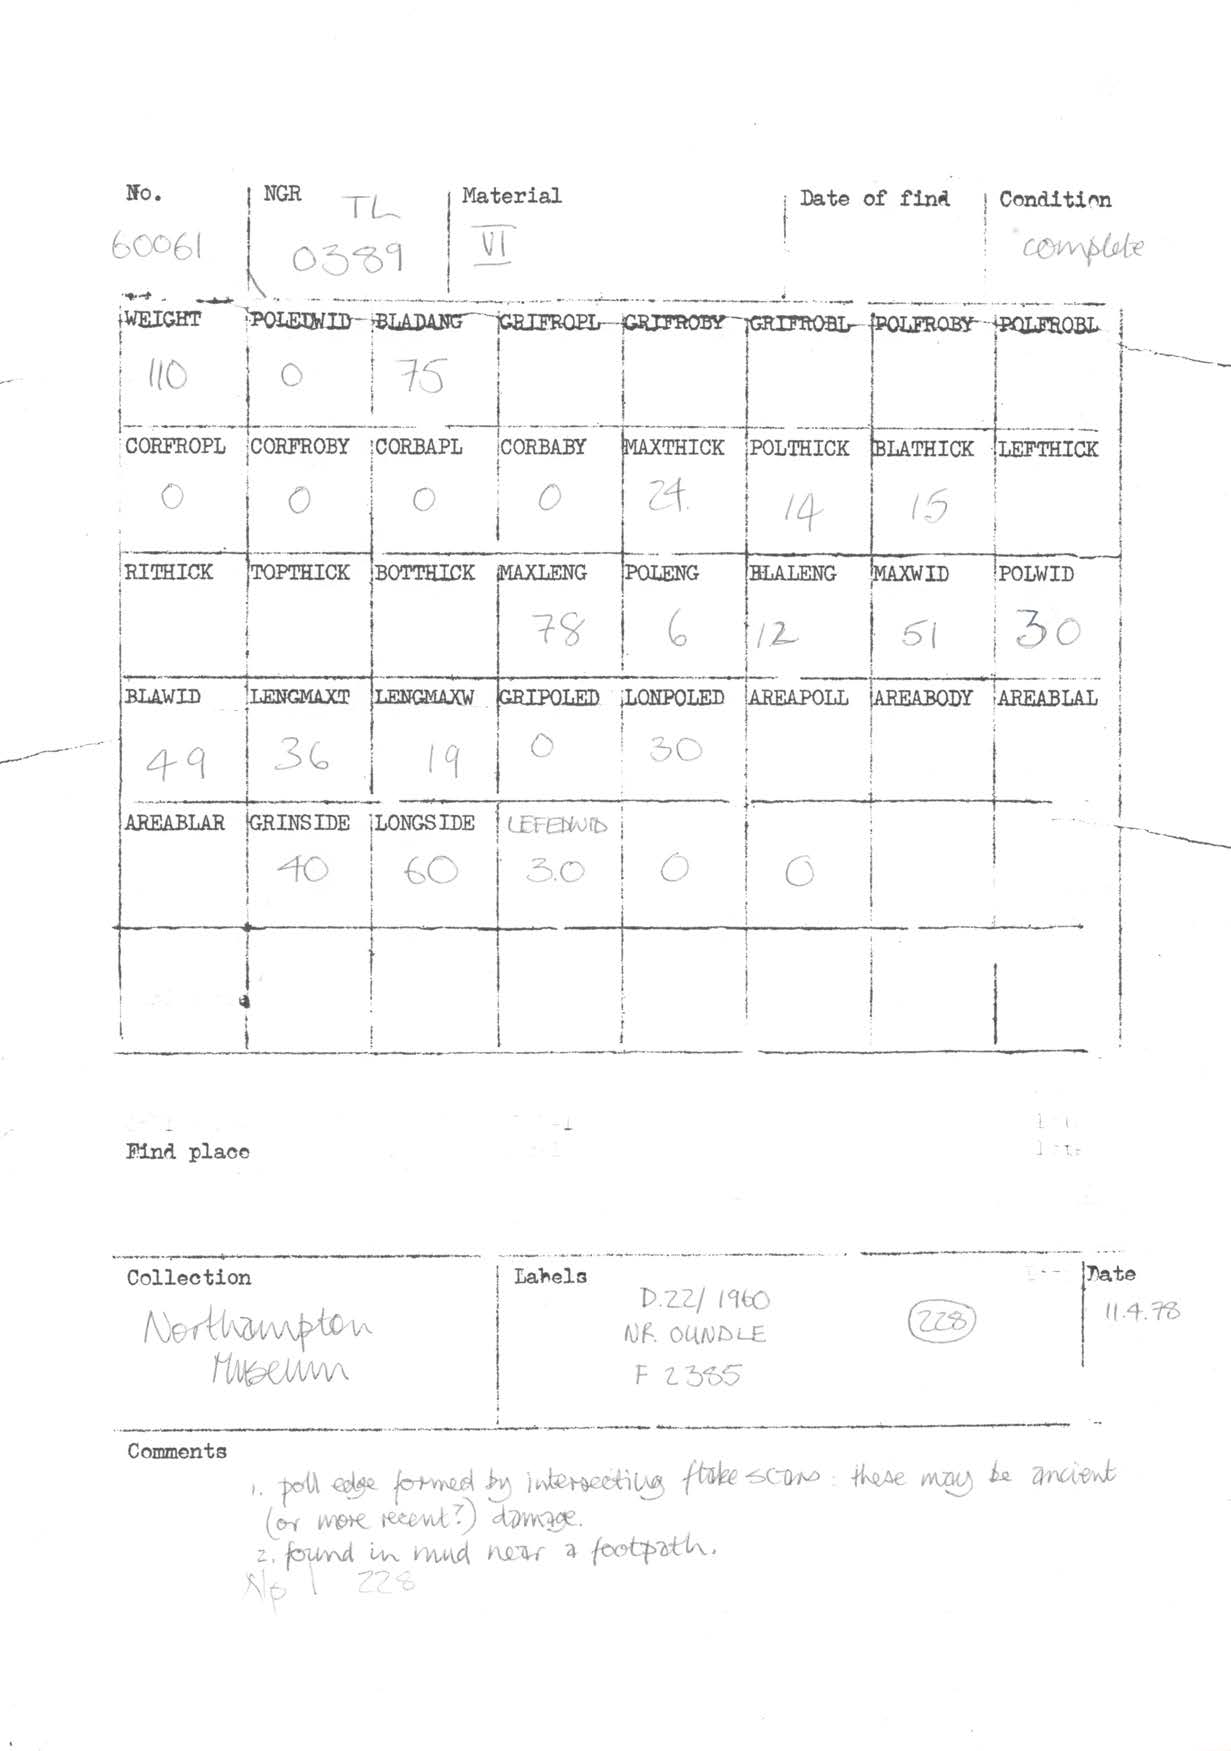 No. NGR TL Material Date of find Condition
60061 0389 VI complete
WEIGHT POLEDWID BLADANG GRIFROPL GRIFROBY GRIFROBL POLFROBY POLFROBL
110 0 75
CORFROPL CORFROBY CORBAPL CORBABY MAXTHICK POLTHICK BLATHICK LEFTHICK
0 0 0 0 24. 14 15
RITHICK TOPTHICK BOTTHICK MAXLENG POLENG BLALENG MAXWID POLWID
78 6 12 51 30
BLAWID LENGMAXT LENGMAXW GRIPOLED LONPOLED AREAPOLL AREABODY AREABLAL
49 36 19 0 30
AREABLAR GRINSIDE LONGSIDE LEFEDWID
40 60 3.0 0 0
Find place
Collection Labels Date
Northampton
Museum
D.22/1960
NR. OUNDLE
F 2385
228
11.4.78
Comments
1. poll edge formed by intersecting flake scars : these may be ancient
(or more recent?) damage.
2. found in mud near a footpath.
Np 1 228